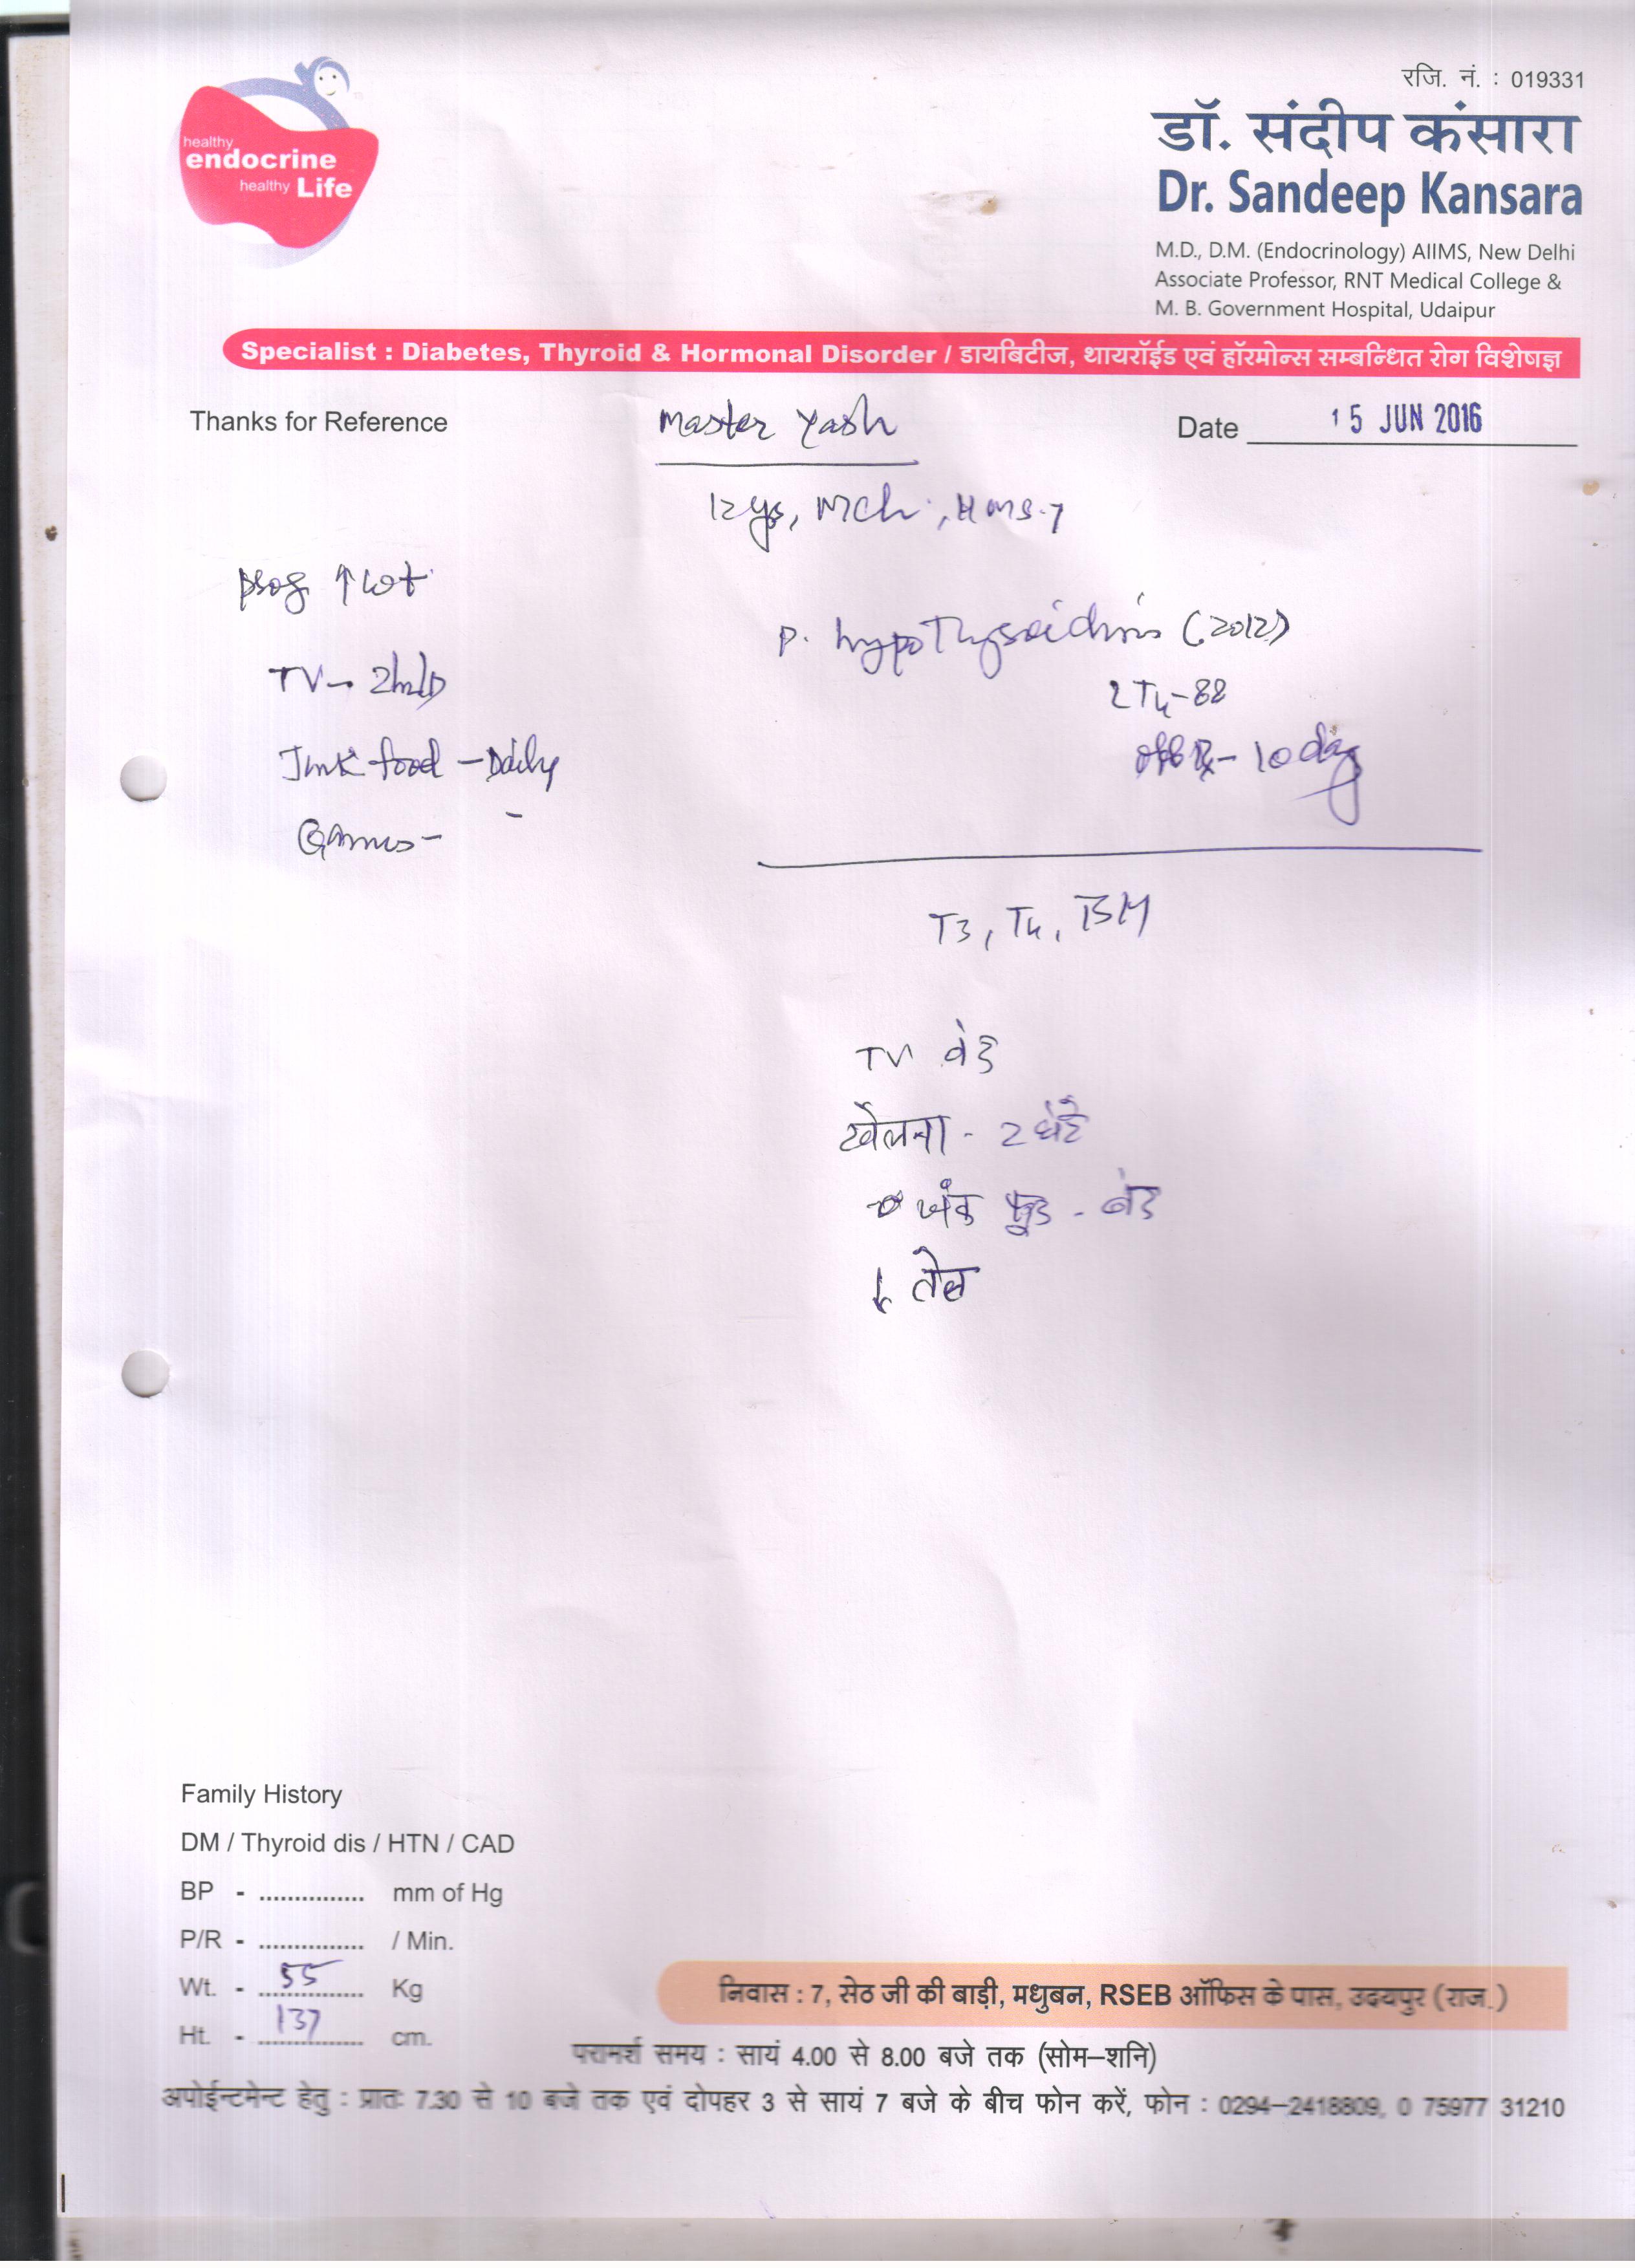 healthy
endocrine
healthy Life
रजि. नं. : 019331
डॉ. संदीप कंसारा
Dr. Sandeep Kansara
M.D., D.M. (Endocrinology) AIIMS, New Delhi
Associate Professor, RNT Medical College &
M. B. Government Hospital, Udaipur
Specialist : Diabetes, Thyroid & Hormonal Disorder / डायबिटीज, थायरॉईड एवं हॉरमोन्स सम्बन्धित रोग विशेषज्ञ
Thanks for Reference
Master Yash
Date 15 JUN 2016
12 yrs, Mch
prog ↑ wt
P. hypothyroidism (2012)
TV - 2h/D
LT4-88
Junk food - Daily
off Rx - 10 day
Games -
T3, T4, TSH
TV बंद
खेलना - 2 घंटे
जंक फूड - बंद
↓ तेल
Family History
DM / Thyroid dis / HTN / CAD
BP - ............... mm of Hg
P/R - ............... / Min.
Wt. - 55 Kg
Ht. - 137 cm.
निवास : 7, सेठ जी की बाड़ी, मधुबन, RSEB ऑफिस के पास, उदयपुर (राज.)
परामर्श समय : सायं 4.00 से 8.00 बजे तक (सोम–शनि)
अपोईन्टमेन्ट हेतु : प्रातः 7.30 से 10 बजे तक एवं दोपहर 3 से सायं 7 बजे के बीच फोन करें, फोन : 0294–2418809, 0 75977 31210